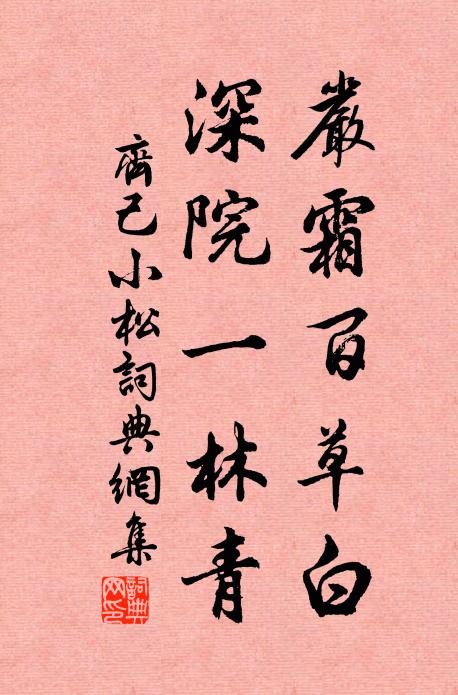 嚴霜百草白
深院一林青
齊己小松詞典網集
詞典網印